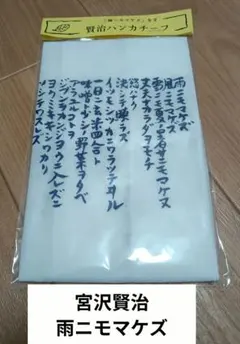 賢治ハンカチーフ
雨ニモマケズ
風ニモマケズ
雪ニモ夏ノ暑サニモマケヌ
丈夫ナカラダヲモチ
慾ハナク
決シテ瞋ラズ
イツモシヅカニワラッテヰル
一日ニ玄米四合ト
味噌ト少シノ野菜ヲタベ
アラユルコトヲ
ジブンヲカンジョウニ入レズニ
ヨクミキキシワカリ
ソシテワスレズ
宮沢賢治
雨ニモマケズ